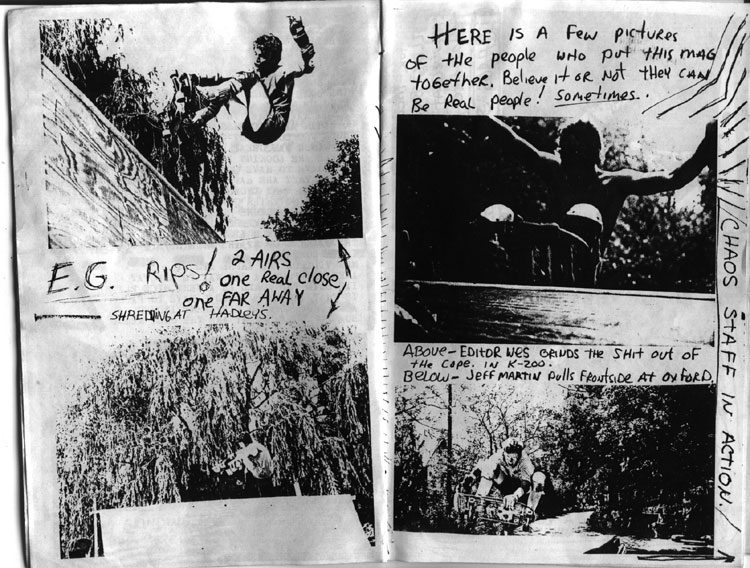 E.G. RIPS!
2 AIRS
one Real close
one FAR AWAY
SHREDDING AT HADLEYS.
HERE IS A FEW PICTURES
OF the people who put THIS MAG
together. Believe it or not they CAN
Be Real people! Sometimes..
ABOVE - EDITOR WES GRINDS THE SHIT OUT OF
the cope. IN K-200.
BELOW - JEFF MARTIN pulls FRONTSIDE AT OXFORD.
CHAOS STAFF IN ACTION!